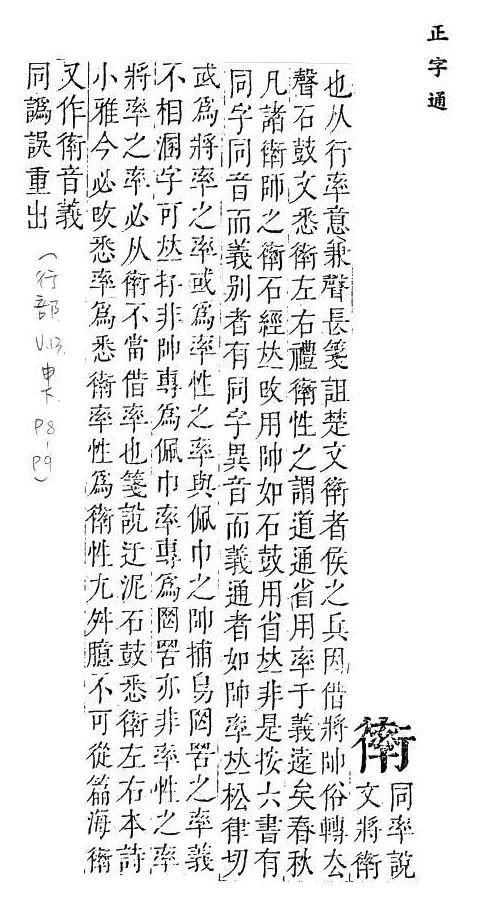 正字通
𧗿
同率說
文將𧗿
也从行率意兼聲長箋詛楚文𧗿者侯之兵因借將帥俗轉厺
聲石鼓文悉𧗿左右禮𧗿性之謂道通省用率于義遠矣春秋
凡諸𧗿師之𧗿石經𠀤攺用帥如石鼓用省𠀤非是按六書有
同字同音而義別者有同字異音而義通者如帥率𠀤松律切
或爲將率之率或爲率性之率與佩巾之帥捕鳥网罟之率義
不相溷字可𠀤存非帥專爲佩巾率專爲网罟亦非率性之率
將率之率必从𧗿不當借率也箋說迂泥石鼓悉𧗿左右本詩
小雅今必攺悉率爲悉𧗿率性爲𧗿性尢舛臆不可從篇海𧗿
又作音義
同譌誤重出
(行部 V.13 申下 P8-P9)